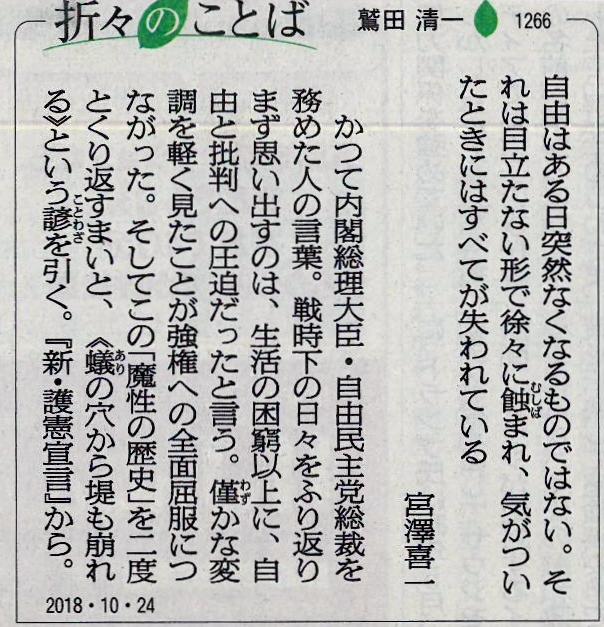 折々のことば
鷲田 清一
1266
自由はある日突然なくなるものではない。そ
れは目立たない形で徐々に蝕まれ、気がつい
たときにはすべてが失われている
宮澤喜一
かつて内閣総理大臣・自由民主党総裁を
務めた人の言葉。戦時下の日々をふり返り
まず思い出すのは、生活の困窮以上に、自
由と批判への圧迫だったと言う。僅かな変
調を軽く見たことが強権への全面屈服につ
ながった。そしてこの「魔性の歴史」を二度
とくり返すまいと、《蟻の穴から堤も崩れ
る》という諺を引く。『新・護憲宣言』から。
2018・10・24